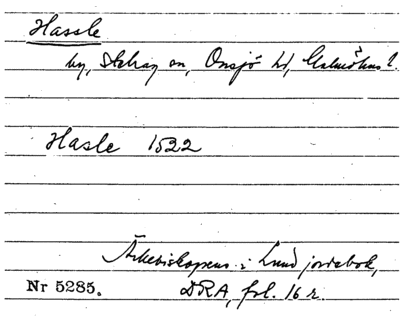 Hassle
by, Stehag sn, Onsjö hd, Malmöhus l.
Hasle 1522
Ärkebiskopens i Lund jordebok,
Nr 5285. DRA, fol. 16 r.